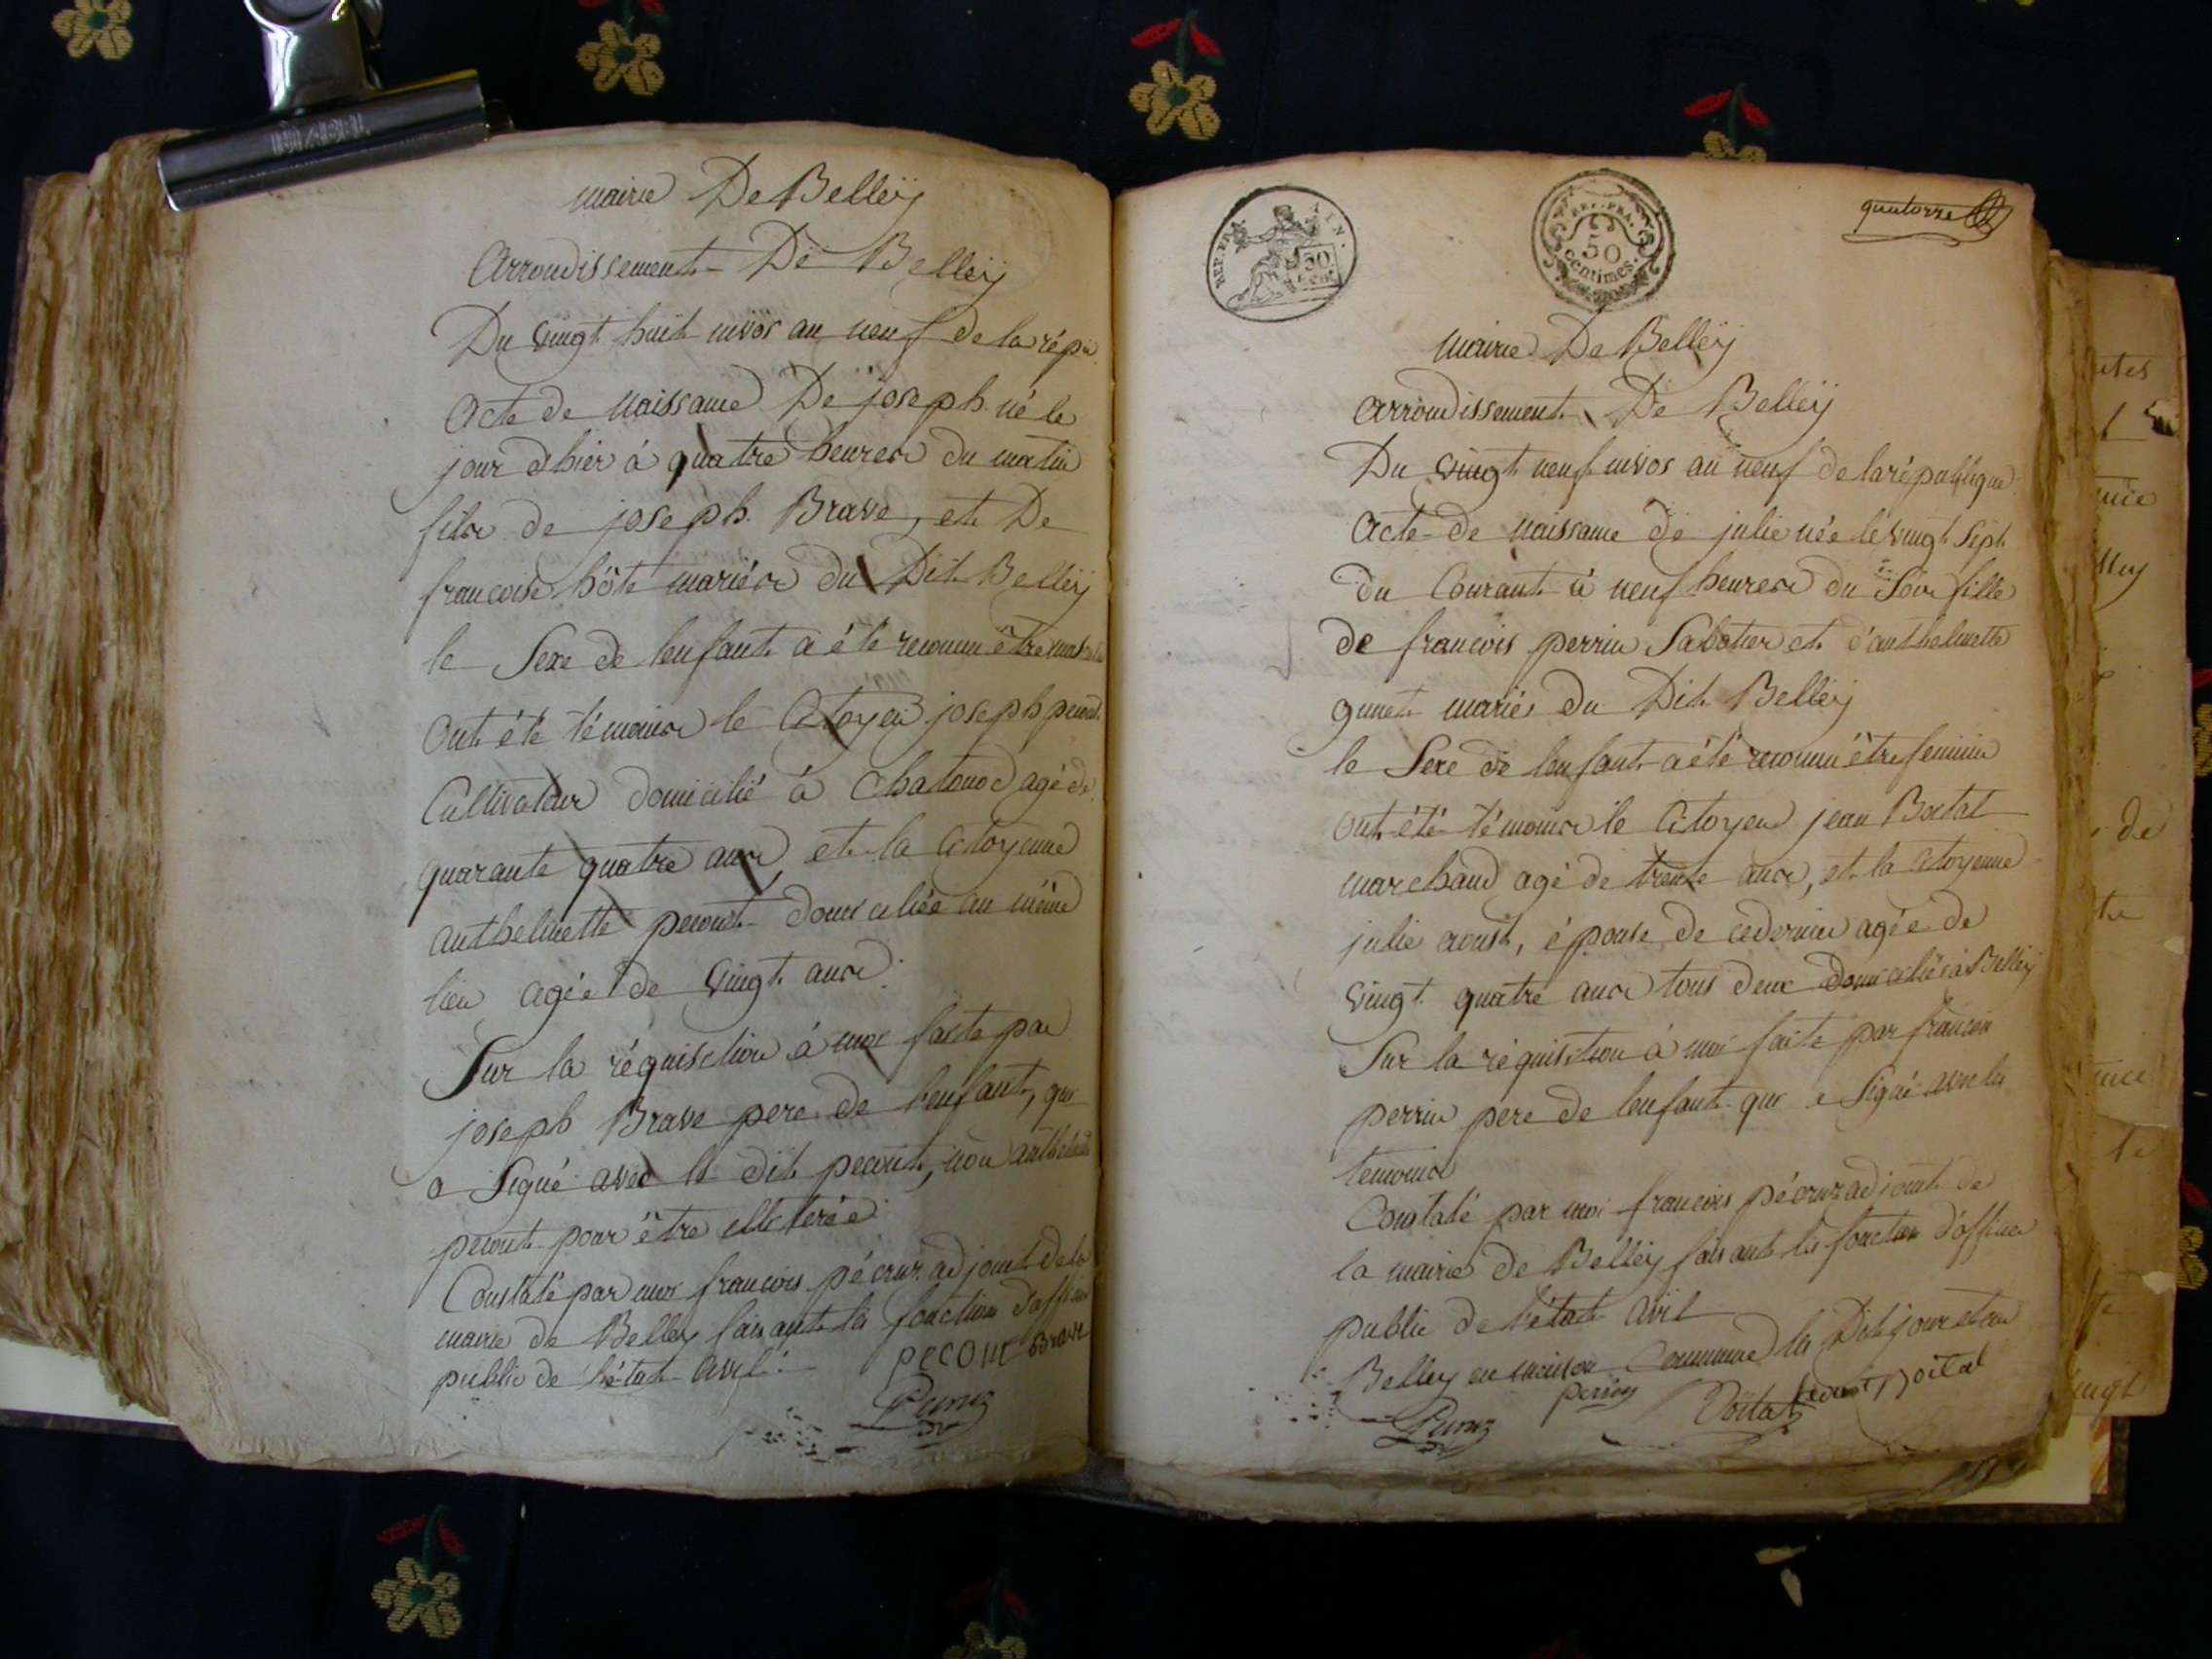 mairie De Belleÿ
Arrondissement De Belleÿ
Du vingt huit nivos an neuf de la répu
Acte de Naissance De joseph né le
jour d'hier à quatre heures du matin
fils de joseph Brave, et De
francoise hôte mariés du Dit Belleÿ
le Sexe de lenfant a été reconnu être
Ont été témoins le Citoyen joseph
Cultivateur domicilié à Chatonod agé de
quarante quatre ans, et la Citoyenne
anthelmette pecout domiciliée au même
lieu agée de vingt ans.
Sur la réquisition à moi faite par
joseph Brave pere de l'enfant, qui
a Signé avec le dit pecout, non
pecout pour être illeterée
Constaté par moi francois pécruz adjoint de la
mairie de Belley faisant les fonction d'officier
public de l'état civil.
pecout Brave
REP. FRA. AIN.
50
REP. FRA.
50
centimes.
quatorze
Mairie De Belleÿ
arrondissement De Belleÿ
Du vingt neuf nivos an neuf de la république.
Acte de naissance de julie née le vingt Sept
du Courant à neuf heures du Soir fille
de francois perrin Sabotier et d'anthelmette
mariés du Dit Belleÿ
le Sexe de lenfant a été reconnu être feminin
ont été témoins le Citoyen jean
marchand agé de trente ans, et la Citoyenne
julie épouse de ce dernier agée de
vingt quatre ans tous deux domiciliés à Belleÿ
Sur la réquisition à moi faite par francois
perrin pere de lenfant qui a Signé avec les
temoins
Constaté par moi francois pécruz adjoint de
la mairie de Belleÿ faisant les fonction d'officier
public de l'état civil
Belley en maison Commune les Dit jour et an
perrin
utes
de
vingt